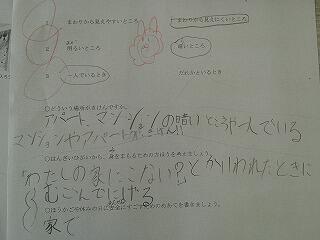 1 まわりから見えやすいところ まわりから見えにくいところ
2 明るいところ 暗いところ
3 一人でいるとき だれかといるとき
○どういう場所がきけんですか。
アパート、マンションの暗いところや一人でいる
マンションやアパート
○はんざいひがいから、身をまもるための方ほうを書きましょう。
「わたしの家にこない?」とかいわれたときに
むごんでにげる
○ほうかごや休みの日に安全にすごすためのめあてを書きましょう。
家で